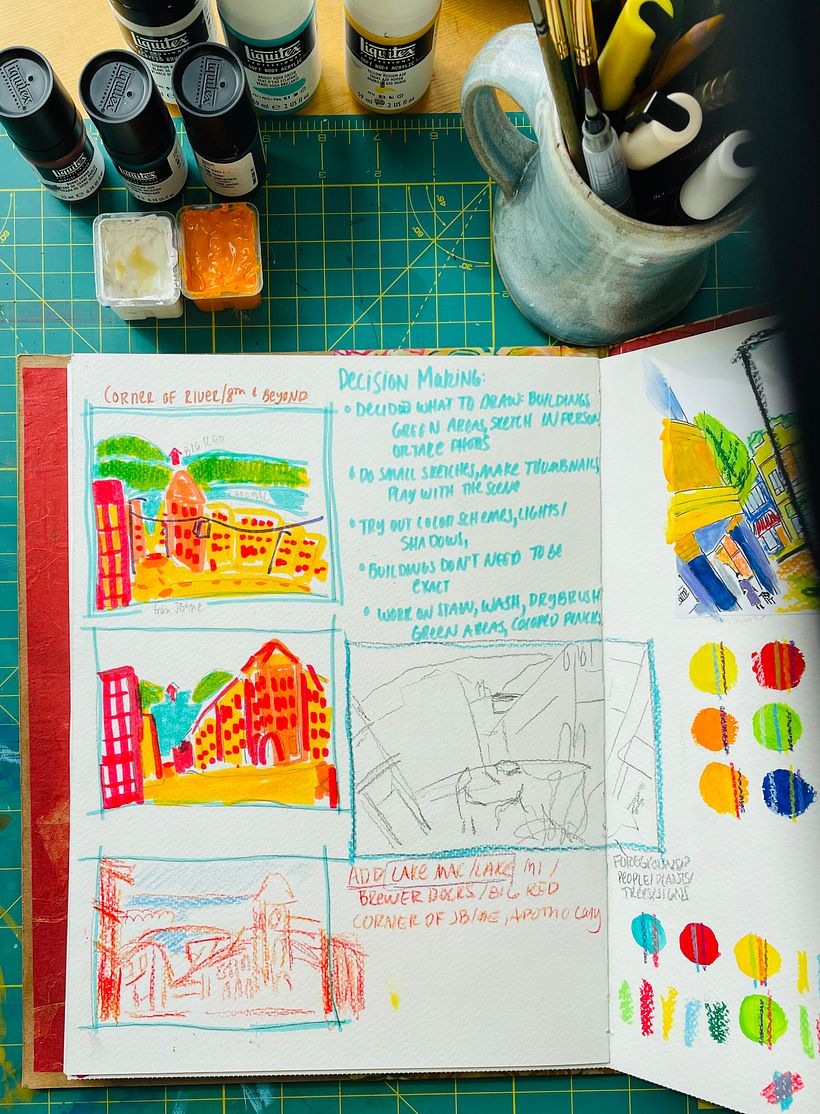 Liquitex
Liquitex
Liquitex
BRIGHT AQUA GREEN
59 ml e 2 US fl oz
Liquitex
59 ml e 2 US fl oz
Liquitex
Liquitex
Liquitex
CORNER OF RIVER/8TH & BEYOND
BIG RED
LAKE MAC
from JB/ME
DECISION MAKING:
• DECIDE WHAT TO DRAW: BUILDINGS
GREEN AREAS, SKETCH IN PERSON
OR TAKE PHOTOS
• DO SMALL SKETCHES, MAKE THUMBNAILS
PLAY WITH THE SCENE
• TRY OUT COLOR SCHEMES, LIGHTS/
SHADOWS,
• BUILDINGS DON'T NEED TO BE
EXACT
• WORK ON STAIN, WASH, DRYBRUSH
GREEN AREAS, COLORED PENCILS
ADD LAKE MAC/LAKE MI/
BREWER DOCKS/BIG RED
CORNER OF JB/ME, APOTHOCARY
FOREGROUNDS?
PEOPLE/PLANTS/
TREES/SIGNS